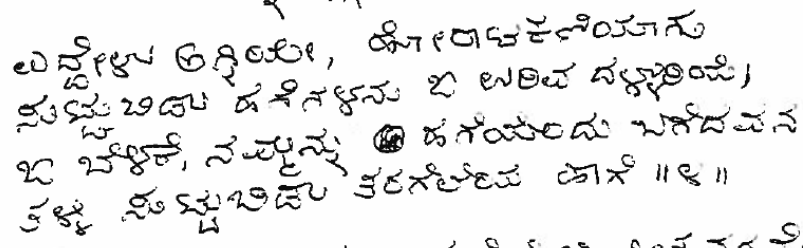 ಎದ್ದೇಳು ಅಗ್ನಿಯೇ, ಹೋರಾಟಕಣಿಯಾಗು
ಸುಟ್ಟುಬಿಡು ಹಗೆಗಳನು ಓ ಉರಿವ ದಳ್ಳುರಿಯೆ,
ಓ ಬೆಳಕೆ, ನಮ್ಮನ್ನು ಹಗೆಯೆಂದು ಬಗೆದವನ
ತಳ್ಳಿ ಸುಟ್ಟುಬಿಡು ತರಗೆಲೆಯ ಹಾಗೆ ॥೪॥